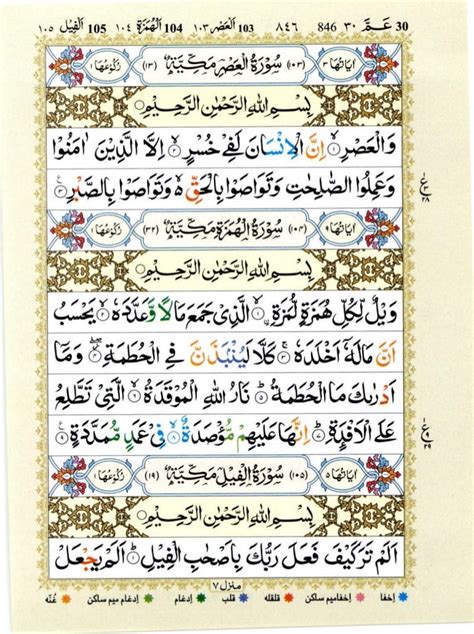 30 عَـمَّ ٣٠ 846 ٨٤٦ 103 اَلْعَصْر ١٠٣ 104 اَلْهُمَزَة ١٠٤ 105 اَلْفِيْل ١٠٥
اٰيَاتُهَا ٣ (١٠٣) سُوْرَةُ الْعَصْرِ مَكِّيَّةٌ (١٣) رُكُوْعُهَا ١
بِسْمِ اللهِ الرَّحْمٰنِ الرَّحِيْمِ
وَالْعَصْرِ ۙ١ اِنَّ الْاِنْسَانَ لَفِيْ خُسْرٍ ۙ٢ اِلَّا الَّذِيْنَ اٰمَنُوْا
وَعَمِلُوا الصّٰلِحٰتِ وَتَوَاصَوْا بِالْحَقِّ ۙ۬ وَتَوَاصَوْا بِالصَّبْرِ ٣
ع
٢٨
اٰيَاتُهَا ٩ (١٠٤) سُوْرَةُ الْهُمَزَةِ مَكِّيَّةٌ (٣٢) رُكُوْعُهَا ١
بِسْمِ اللهِ الرَّحْمٰنِ الرَّحِيْمِ
وَيْلٌ لِّكُلِّ هُمَزَةٍ لُّمَزَةِ ۙ١ الَّذِيْ جَمَعَ مَالًا وَّعَدَّدَهٗ ۙ٢ يَحْسَبُ
اَنَّ مَالَهٗٓ اَخْلَدَهٗ ۚ٣ كَلَّا لَيُنْۢبَذَنَّ فِي الْحُطَمَةِ ۖ٤ وَمَآ
اَدْرٰىكَ مَا الْحُطَمَةُ ؕ٥ نَارُ اللهِ الْمُوْقَدَةُ ۙ٦ الَّتِيْ تَطَّلِعُ
عَلَى الْاَفْـِٕدَةِ ؕ٧ اِنَّهَا عَلَيْهِمْ مُّؤْصَدَةٌ ۙ٨ فِيْ عَمَدٍ مُّمَدَّدَةٍ ٩
ع
٢٩
اٰيَاتُهَا ٥ (١٠٥) سُوْرَةُ الْفِيْلِ مَكِّيَّةٌ (١٩) رُكُوْعُهَا ١
بِسْمِ اللهِ الرَّحْمٰنِ الرَّحِيْمِ
اَلَمْ تَرَ كَيْفَ فَعَلَ رَبُّكَ بِاَصْحٰبِ الْفِيْلِ ؕ١ اَلَمْ يَجْعَلْ
منزل ٧
اخفا اخفامیم ساکن قلقله قلب ادغام ادغام میم ساکن غُنّه